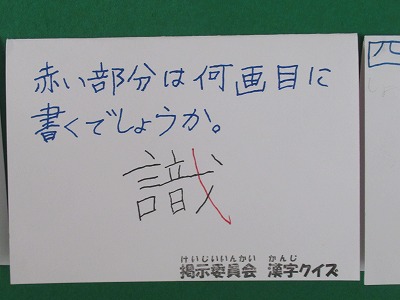 赤い部分は何画目に
書くでしょうか。
識
けいじいいんかい かんじ
掲示委員会 漢字クイズ
四